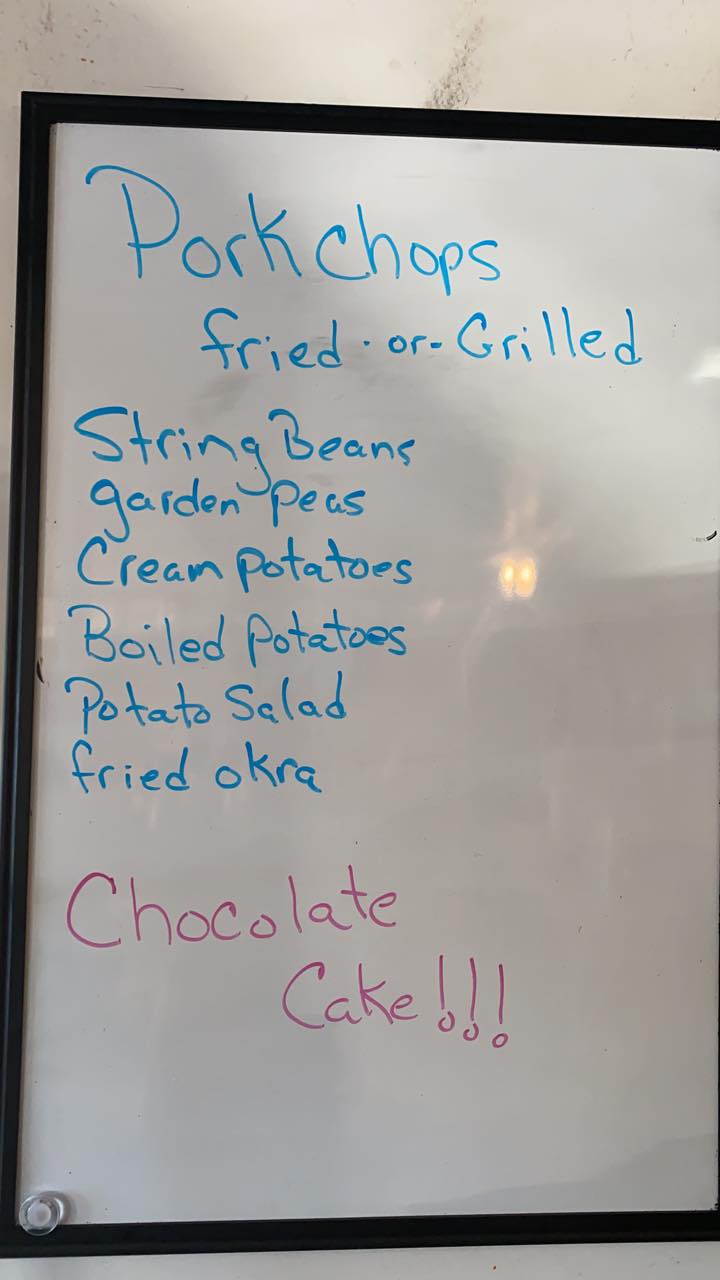 Pork chops
fried - or - Grilled
String Beans
garden peas
Cream potatoes
Boiled potatoes
Potato Salad
fried okra
Chocolate
Cake!!!